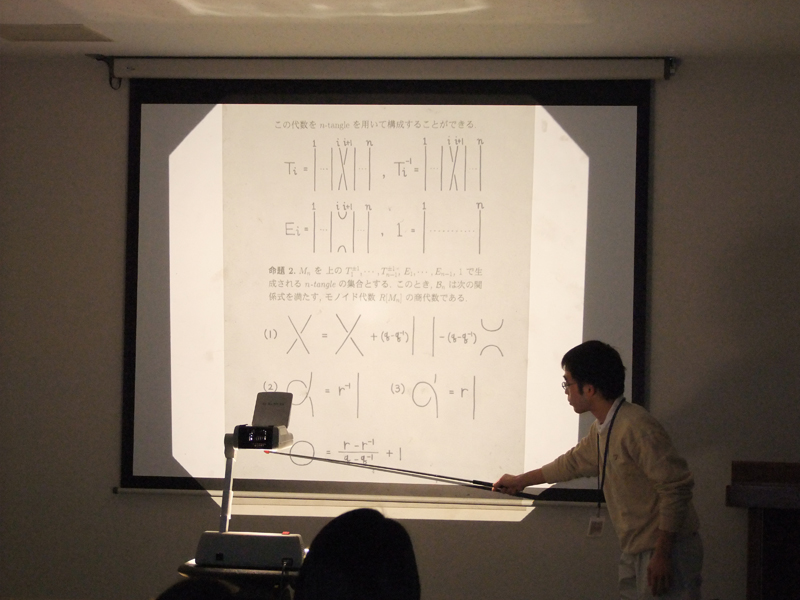 この代数を n-tangle を用いて構成することができる.
1 i i+1 n 1 i i+1 n
Ti = ... ... , Ti⁻¹ = ... ...
1 i i+1 n 1 n
Ei = ... ... , 1 = ........
命題 2. Mn を 上の T₁±¹, ⋯ , E₁, ⋯ , En−1, 1 で生
成される n-tangle の集合とする. このとき, Bn は次の関
係式を満たす, モノイド代数 R[Mn] の商代数である.
(1) = + (q-q⁻¹) - (q-q⁻¹)
(2) = r⁻¹ (3) = r
= r - r⁻¹ / q - q⁻¹ + 1